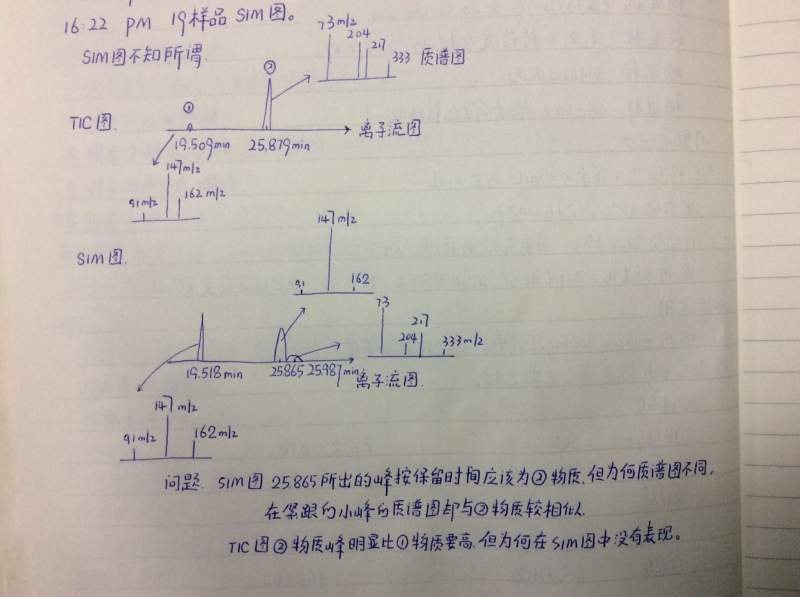 16:22 PM 19样品SIM图。
SIM图不知所谓.
73 m/z
204
217
333 质谱图
②
①
TIC图.
19.509min 25.879min 离子流图
147 m/z
91 m/z 162 m/z
SIM图.
147 m/z
91 162
73
204 217 333 m/z
19.518min 25.865 25.987min 离子流图.
147 m/z
91 m/z 162 m/z
问题. SIM图 25.865所出的峰按保留时间应该为②物质.但为何质谱图不同,
在紧跟的小峰的质谱图却与②物质较相似.
TIC图②物质峰明显比①物质要高.但为何在SIM图中没有表现。